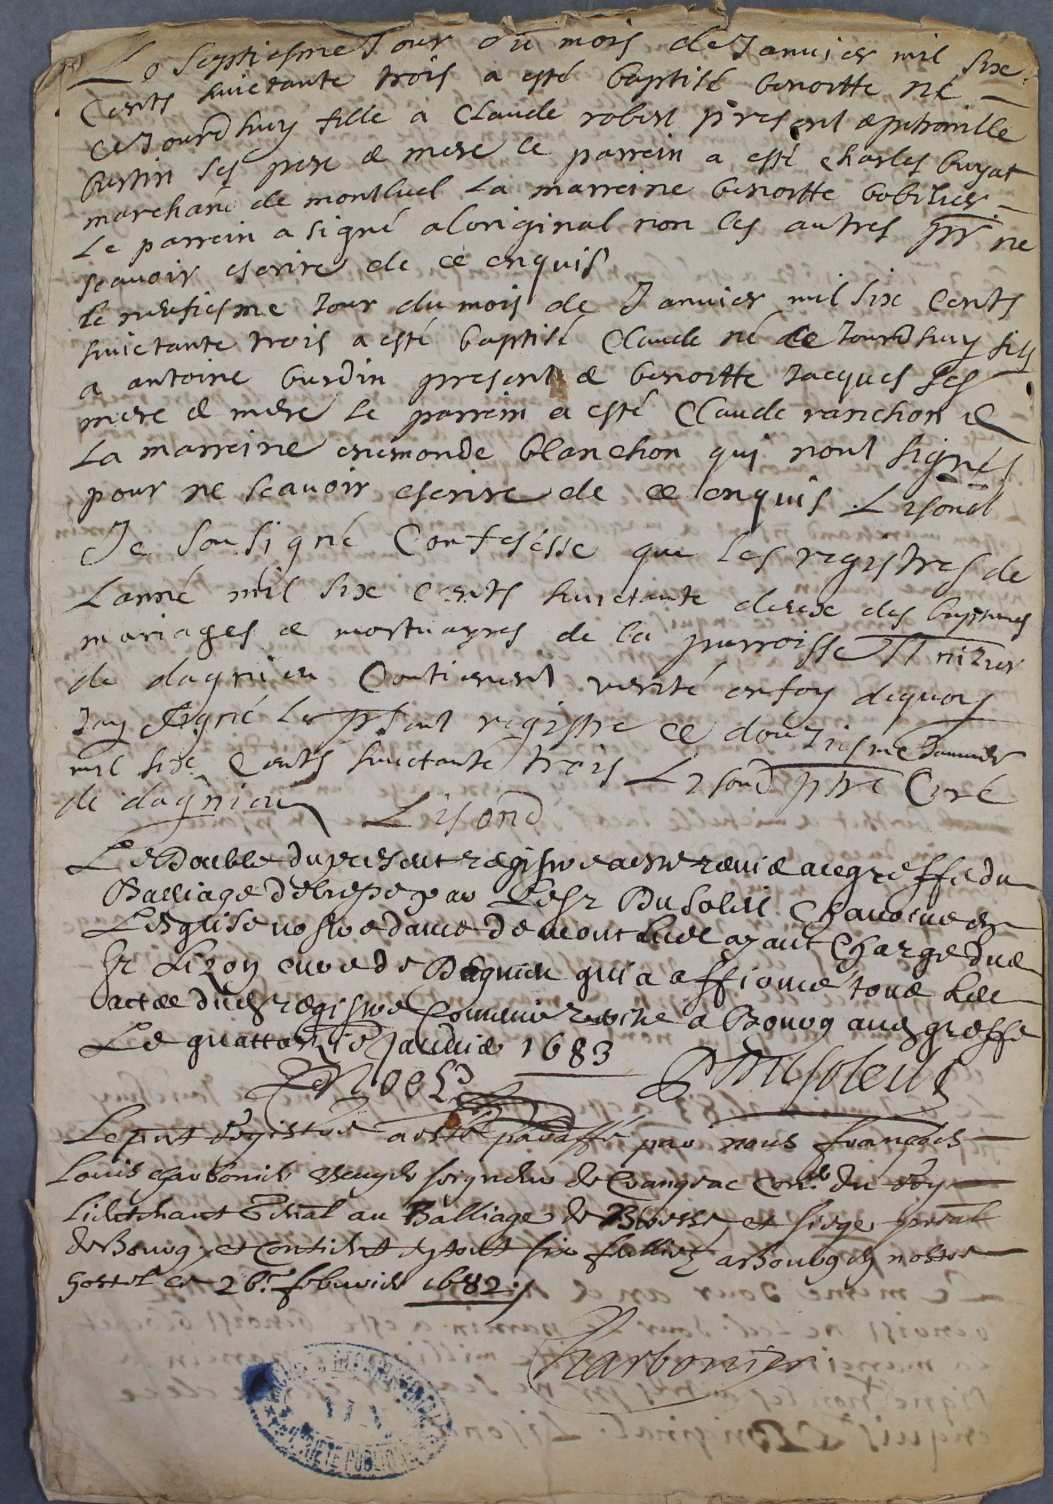 Le septiesme Jour du mois de Janvier mil six
Cents huictante trois a esté baptisé benoitte né
ce Jourdhuy fille a Claude robert present & petronille
burtin ses pere & mere le parrein a esté charles buyat
marchand de montluel La marreine benoitte
Le parrein a signé aloriginal non les autres pr ne
scavoir escrire de ce enquis
le neufiesme Jour du mois de Janvier mil six Cents
huictante trois a esté baptisé Claude né ce Jourdhuy fils
a antoine burdin present & benoitte Jacques ses
pere & mere Le parrein a esté Claude ranchon &
La marreine enemonde blanchon qui nont signés
pour ne scavoir escrire de ce enquis Lisond
Je sousigné Confesse que les registres de
Lanné mil six Cents huictante deux des baptemes
mariages & mortuayres de la parroisse
de dagnieu Contienent verité en foy dequoy
Jay signé Le pnt registre ce douziesme Janvier
mil six Cents huictante trois Lisond ptre Curé
de dagnieu Lisond
Le Double du present registre a este remis au greffe du
Balliage de bresse par Dusoleil Chanoine en
Lesglise nostre dame de montluel ayant Charge du
Sr Lizon cure de Dagnieu qui a affirmé
acte dud registre a Bourg aud greffe
Le Janvier 1683
Dusoleil
Le pnt Registre a esté paraffé par nous françois
Louis Charbonier seigneur de Crangeac Conr du Roy
Lieutenant gnal au Balliage de Bresse et siege psial
de Bourg et Contient en tout six fullietz a Bourg en nostre
hostel ce 26e febvrier 1682
Charbonier